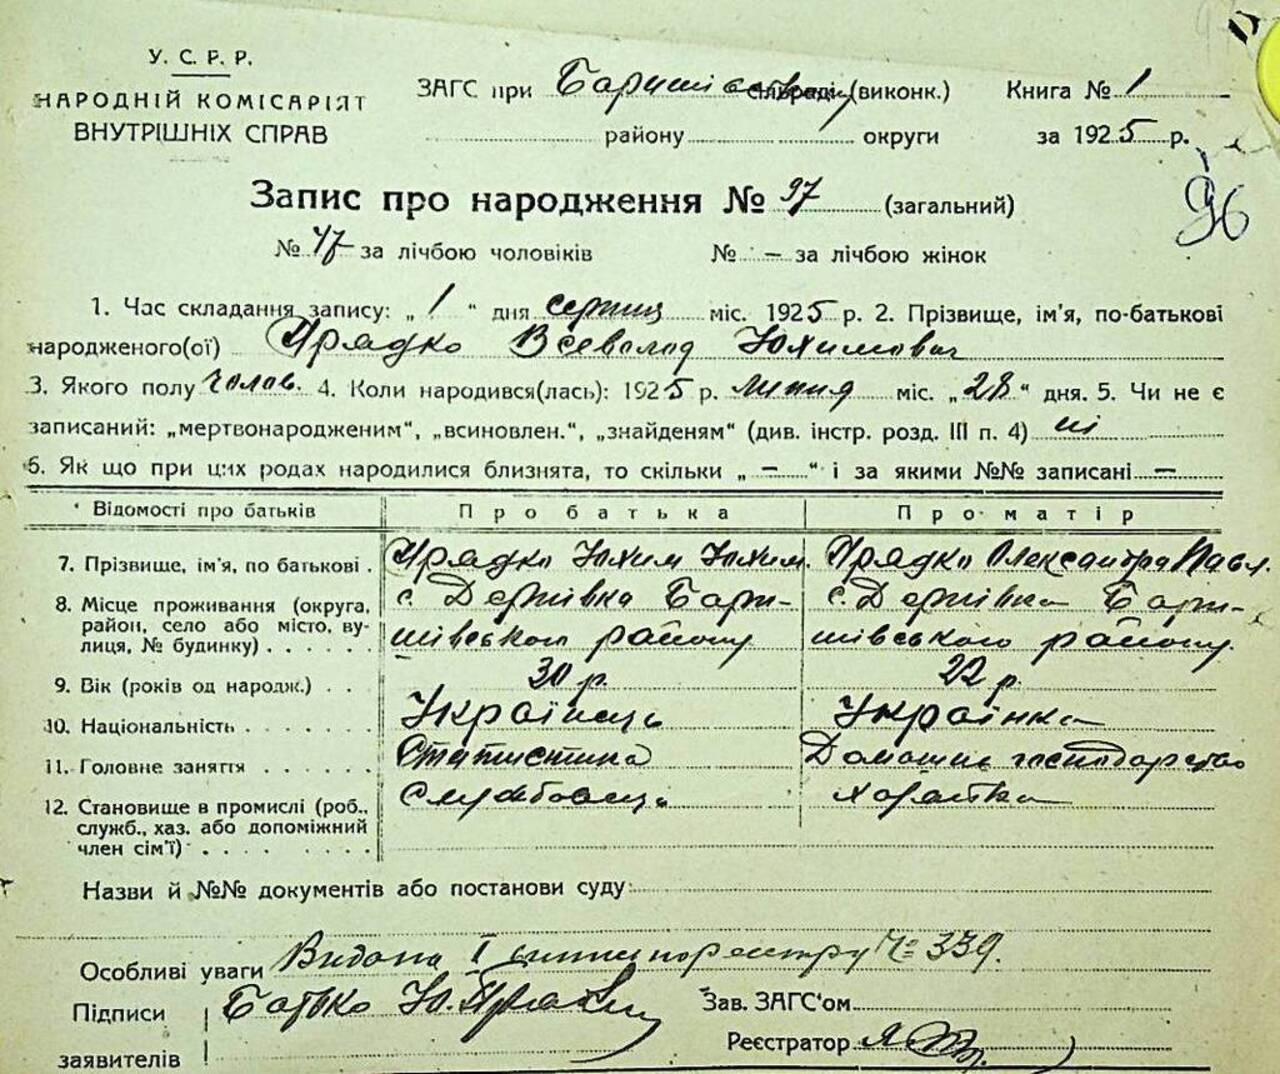 У. С. Р. Р.
НАРОДНІЙ КОМІСАРІЯТ
ВНУТРІШНІХ СПРАВ
ЗАГС при Баришівськ сільраді (виконк.) Книга № 1
району округи за 1925 р.
96
Запис про народження № 97 (загальний)
№ 47 за лічбою чоловіків № — за лічбою жінок
1. Час складання запису: „1“ дня серпня міс. 1925 р. 2. Прізвище, ім'я, по-батькові
народженого(ої) Прядко Всеволод Юхимович
3. Якого полу чолов. 4. Коли народився(лась): 1925 р. липня міс. „28“ дня. 5. Чи не є
записаний: „мертвонародженим“, „всиновлен.“, „знайденям“ (див. інстр. розд. III п. 4) ні
6. Як що при цих родах народилися близнята, то скільки „—“ і за якими №№ записані —
Відомості про батьків Про батька Про матір
7. Прізвище, ім'я, по батькові . Прядко Юхим Юхим. Прядко Олександра Павл.
8. Місце проживання (округа, с. Дернівка Бари- с. Дернівка Бари-
район, село або місто, ву- шівського району шівського району.
лиця, № будинку) . . . . . .
9. Вік (років од народж.) . . 30 р. 22 р.
10. Національність . . . . . . . Українець Українка
11. Головне заняття . . . . . . Статистика Домашнє господарство
12. Становище в промислі (роб., Службовець хазяйка
служб., хаз. або допоміжний
член сім'ї) . . . . . . . .
Назви й №№ документів або постанови суду:
Особливі уваги Видана № 339.
Підписи Батько Ю. Прядко Зав. ЗАГС'ом
заявителів Реєстратор